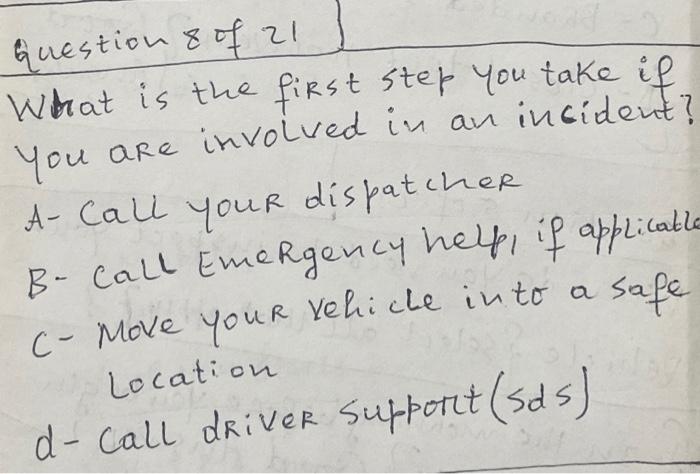 Question 8 of 21
What is the first step you take if
you are involved in an incident?
A- Call your dispatcher
B- Call Emergency help, if applicable
C- Move your vehicle into a safe
Location
d- Call driver support (sds)